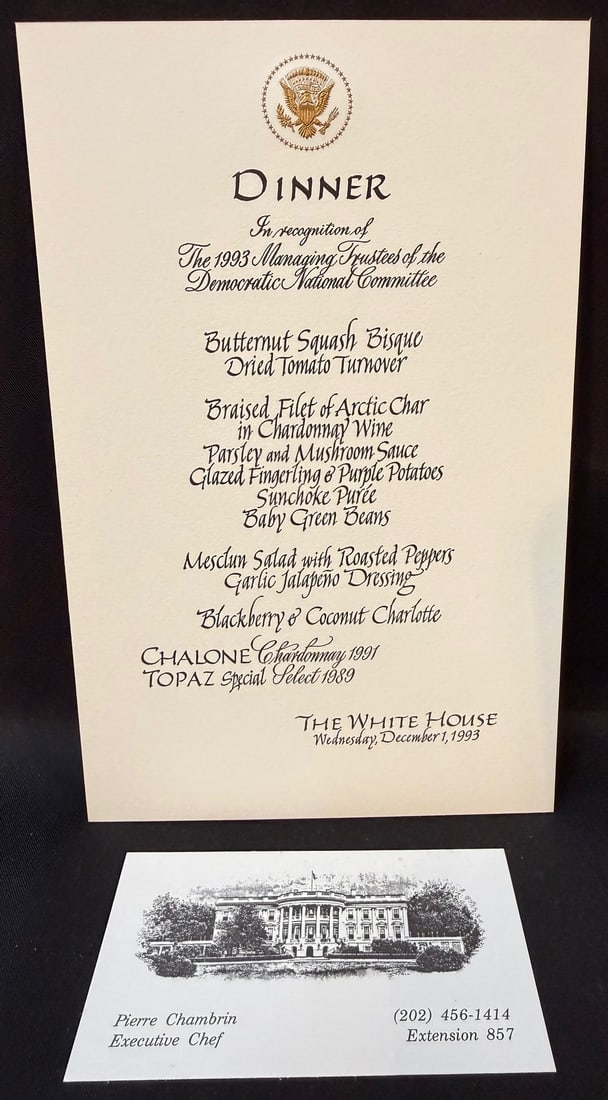 DINNER
In recognition of
The 1993 Managing Trustees of the
Democratic National Committee
Butternut Squash Bisque
Dried Tomato Turnover
Braised Filet of Arctic Char
in Chardonnay Wine
Parsley and Mushroom Sauce
Glazed Fingerling & Purple Potatoes
Sunchoke Purée
Baby Green Beans
Mesclun Salad with Roasted Peppers
Garlic Jalapeño Dressing
Blackberry & Coconut Charlotte
CHALONE Chardonnay 1991
TOPAZ Special Select 1989
THE WHITE HOUSE
Wednesday, December 1, 1993
Pierre Chambrin
Executive Chef
(202) 456-1414
Extension 857